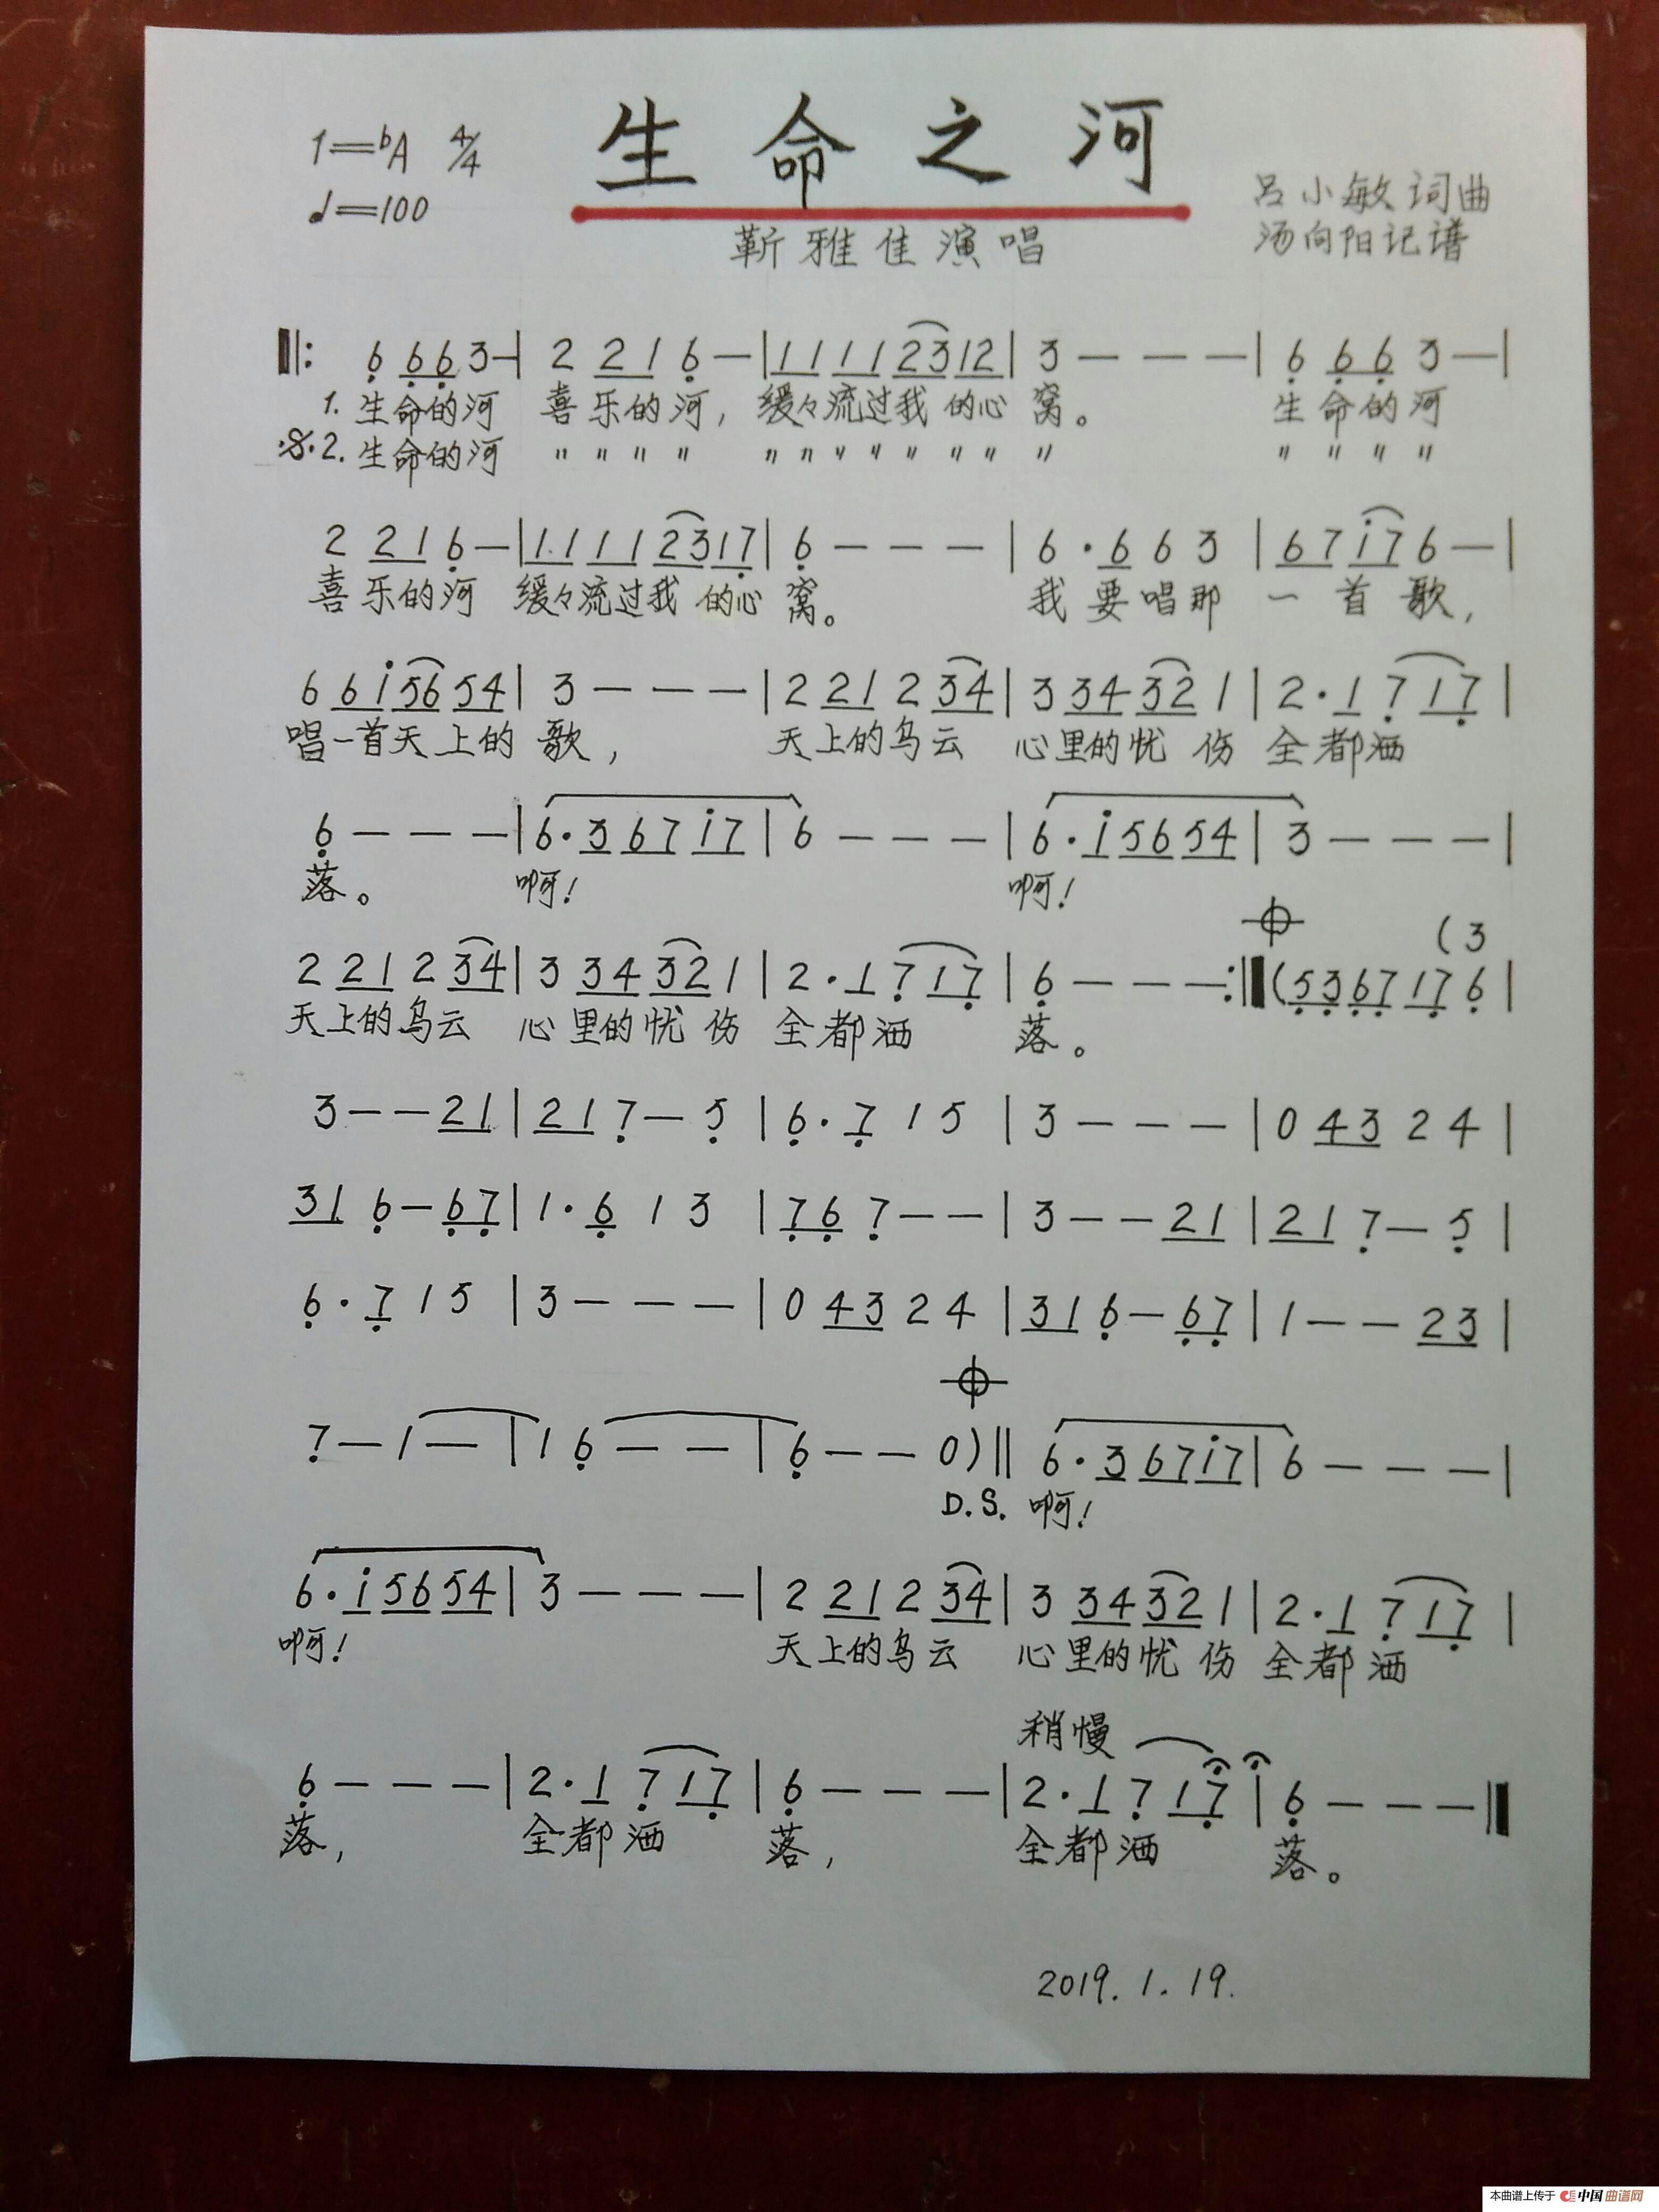 1=♭A 4/4 生命之河
♩=100
吕小敏词曲
靳雅佳演唱 汤向阳记谱
‖: 6̣ 6̣6̣ 3 — | 2 21 6̣ — | 11 11 23 12 | 3 — — — | 6̣ 6̣6̣ 3 — |
1. 生命的河 喜乐的河, 缓々流过我的心窝。 生命的河
𝄋 2. 生命的河 〃 〃 〃 〃 〃 〃 〃 〃 〃 〃 〃 〃 〃 〃 〃 〃
2 21 6̣ — | 11 11 23 17̣ | 6̣ — — — | 6 · 6 6 3 | 67 i7 6 — |
喜乐的河 缓々流过我的心窝。 我要唱那一首歌,
6 6i 56 54 | 3 — — — | 2 21 2 34 | 3 34 32 1 | 2 · 1 7̣ 17̣ |
唱一首天上的歌, 天上的乌云 心里的忧伤 全都洒
6̣ — — — | 6 · 3 67 i7 | 6 — — — | 6 · i 56 54 | 3 — — — |
落。 啊! 啊!
𝄌 (3
2 21 2 34 | 3 34 32 1 | 2 · 1 7̣ 17̣ | 6̣ — — — :‖ (5̣3̣ 6̣7̣ 17̣ 6̣ |
天上的乌云 心里的忧伤 全都洒 落。
3 — — 21 | 21 7̣ — 5̣ | 6̣ · 7̣ 1 5 | 3 — — — | 0 43 2 4 |
31 6̣ — 6̣7̣ | 1 · 6̣ 1 3 | 7̣6̣ 7̣ — — | 3 — — 21 | 21 7̣ — 5̣ |
6̣ · 7̣ 1 5 | 3 — — — | 0 43 2 4 | 31 6̣ — 6̣7̣ | 1 — — 23 |
𝄌
7̣ — 1 — | 1 6̣ — — | 6̣ — — 0) ‖ 6 · 3 67 i7 | 6 — — — |
D.S. 啊!
6 · i 56 54 | 3 — — — | 2 21 2 34 | 3 34 32 1 | 2 · 1 7̣ 17̣ |
啊! 天上的乌云 心里的忧伤 全都洒
稍慢
6̣ — — — | 2 · 1 7̣ 17̣ | 6̣ — — — | 2 · 1 7̣ 17̣ | 6̣ — — — ‖
落, 全都洒 落, 全都洒 落。
2019.1.19.
本曲谱上传于 中国曲谱网